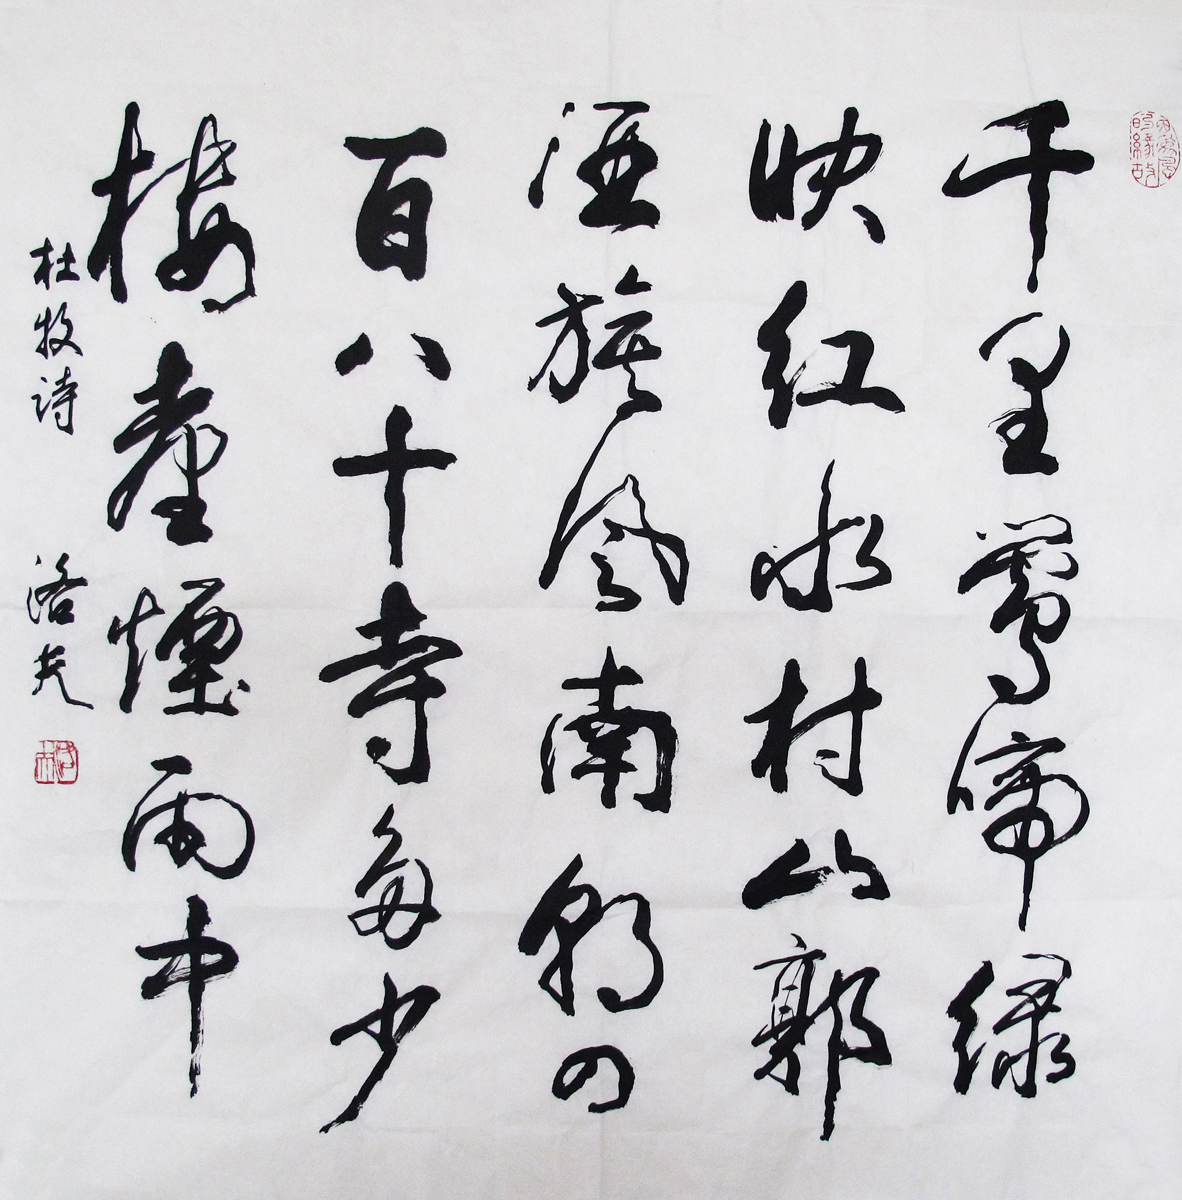 千里莺啼绿
映红水村山郭
酒旗风南朝四
百八十寺多少
楼台烟雨中
杜牧诗
洛夫